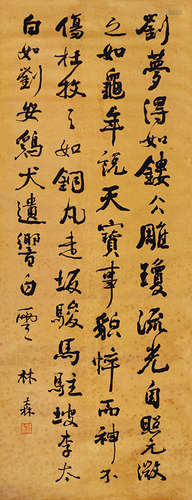 劉夢得如鏤氷雕瓊流光自照元微
之如龜年說天寶事貌悴而神不
傷杜牧之如銅丸走坂駿馬駐坡李太
白如劉安鷄犬遺響白雲
林森